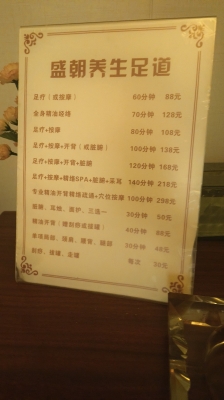 盛朝养生足道
足疗（或按摩） 60分钟 88元
全身精油经络 70分钟 128元
足疗+按摩 80分钟 108元
足疗+按摩+开背（或腿部） 100分钟 138元
足疗+按摩+开背+腿部 120分钟 168元
足疗+按摩+精油SPA+腿部+采耳 140分钟 218元
专业精油开背经络疏通+穴位按摩 100分钟 298元
30分钟 58元
40分钟 88元
30分钟 48元
刮痧、拔罐、走罐 每次 30元